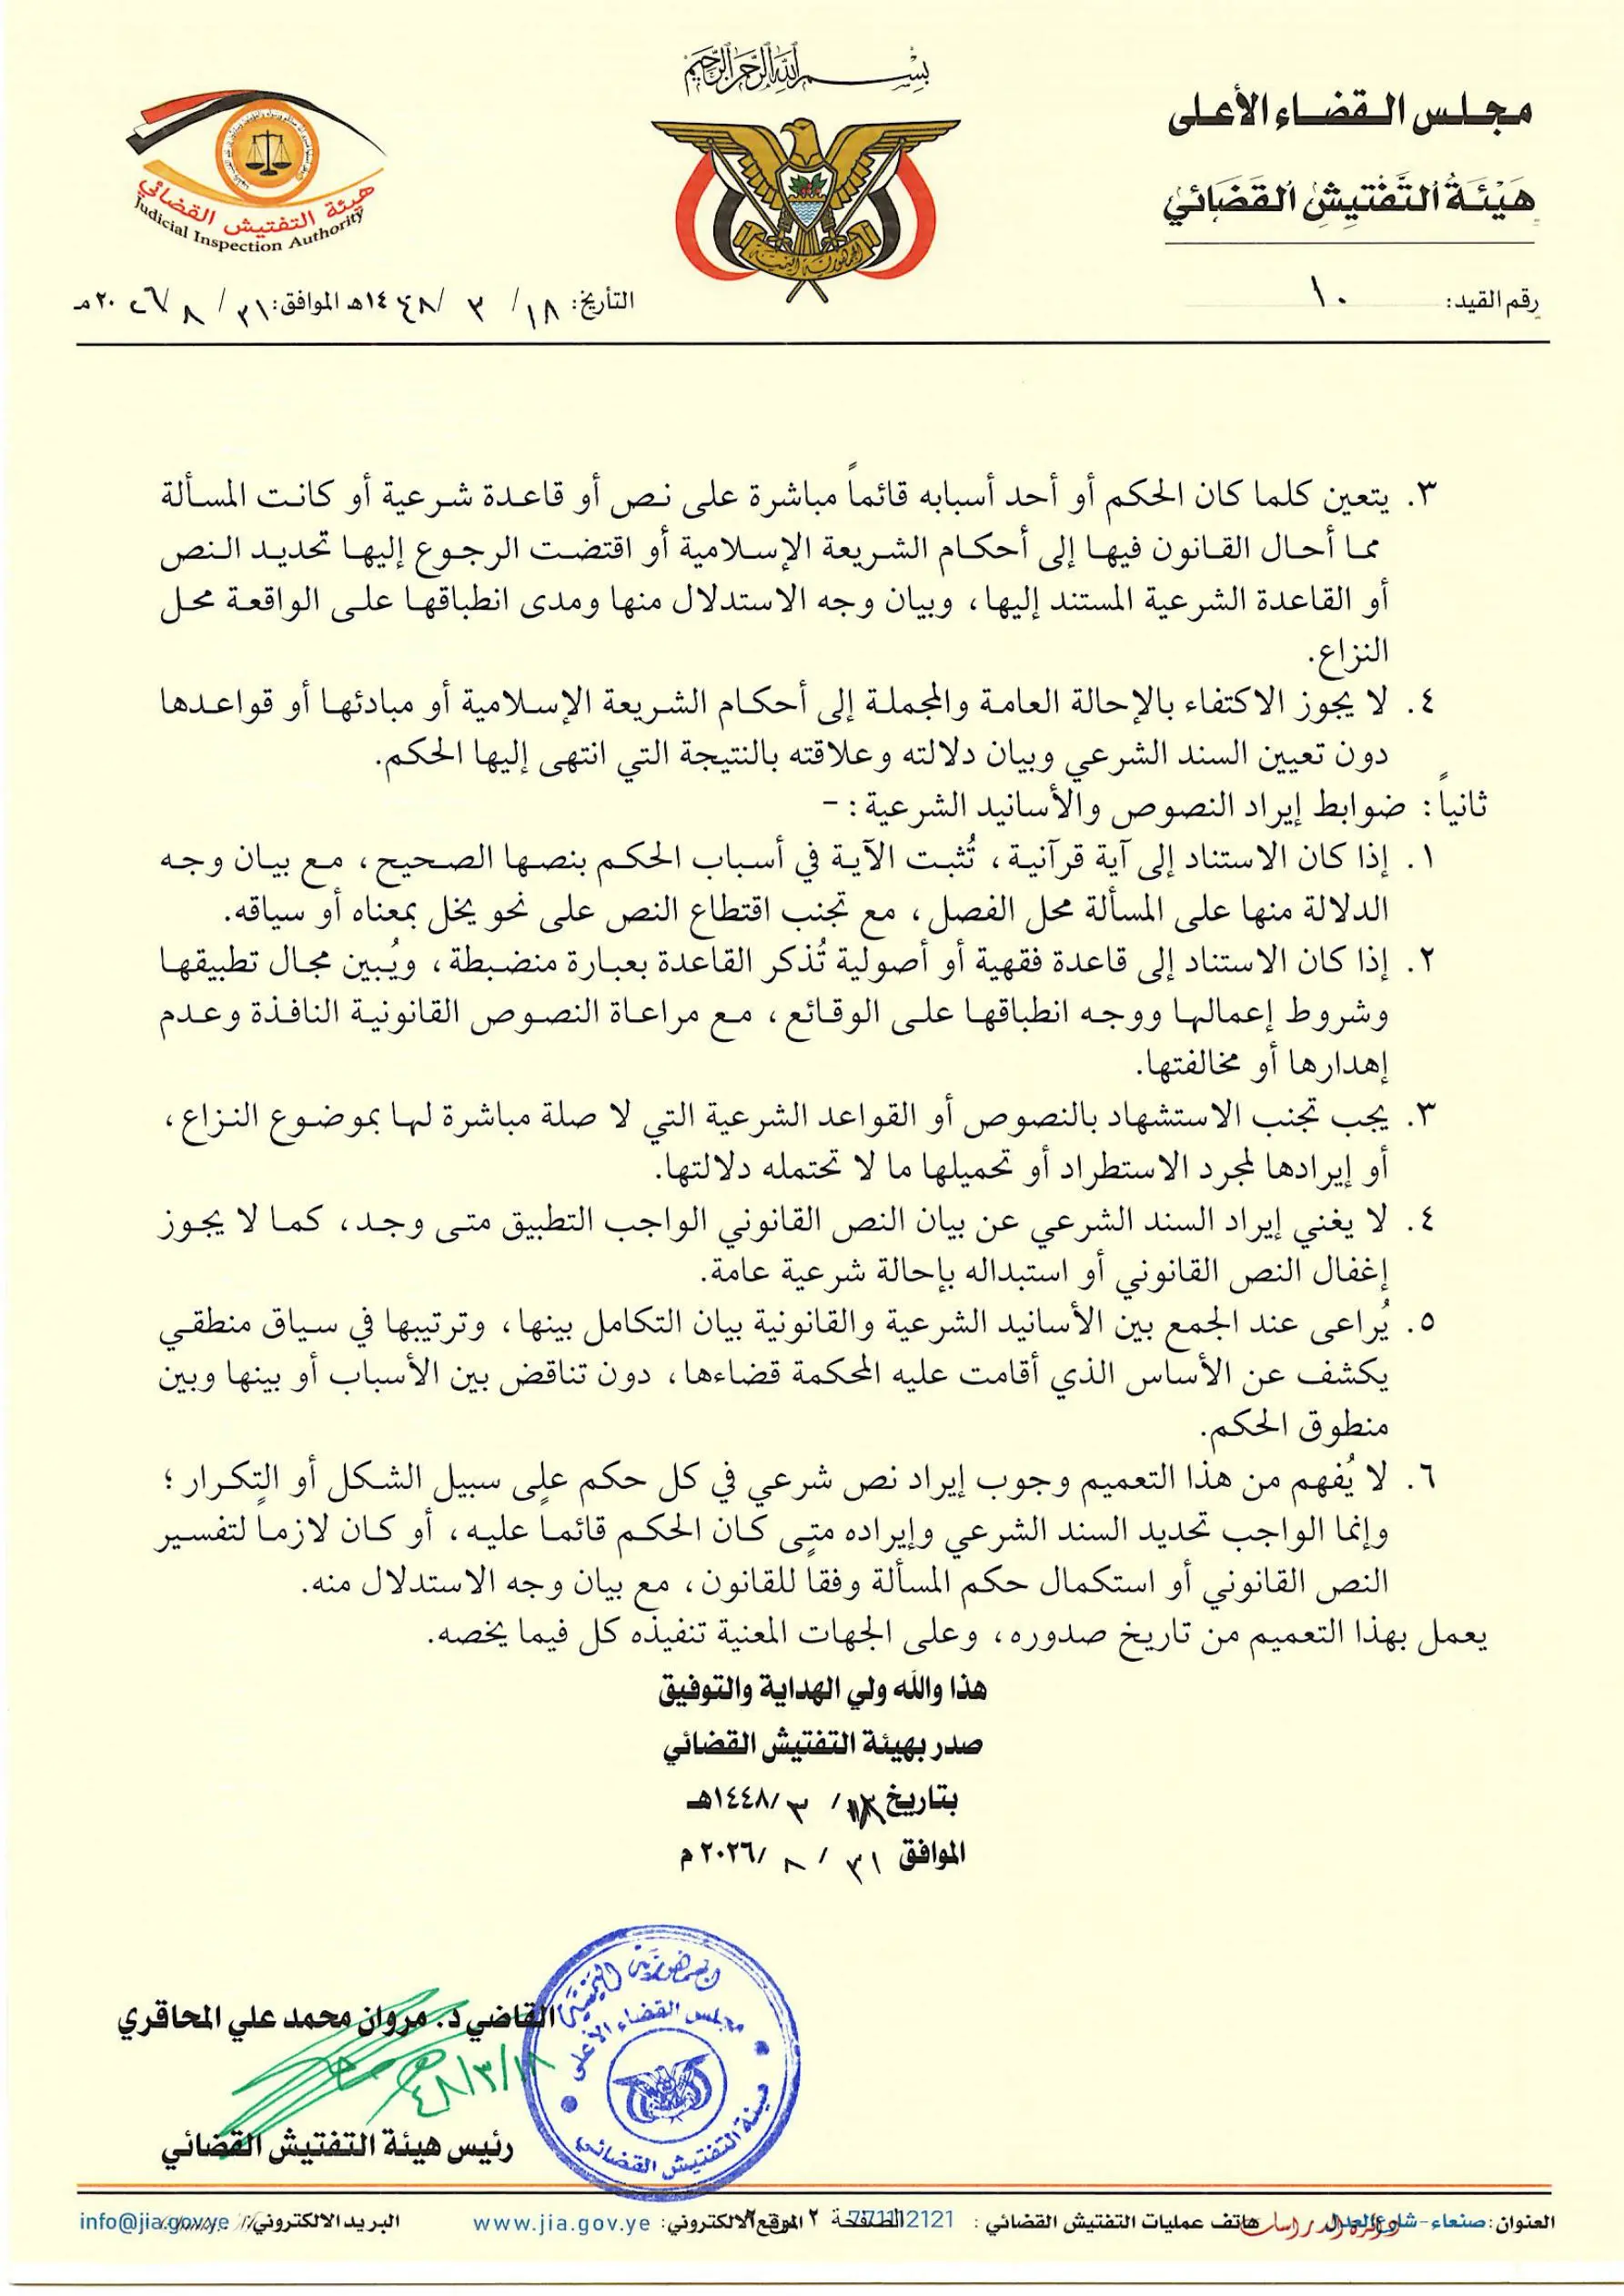 بسم الله الرحمن الرحيم
مجلس القضاء الأعلى
هيئة التفتيش القضائي
هيئة التفتيش القضائي
Judicial Inspection Authority
الجمهورية اليمنية
رقم القيد: ١٠
التأريخ: ١٨ / ٣ / ١٤٤٨هـ الموافق: ٣١ / ٨ / ٢٠٢٦مـ
٣. يتعين كلما كان الحكم أو أحد أسبابه قائماً مباشرة على نص أو قاعدة شرعية أو كانت المسألة
مما أحال القانون فيها إلى أحكام الشريعة الإسلامية أو اقتضت الرجوع إليها تحديد النص
أو القاعدة الشرعية المستند إليها، وبيان وجه الاستدلال منها ومدى انطباقها على الواقعة محل
النزاع.
٤. لا يجوز الاكتفاء بالإحالة العامة والمجملة إلى أحكام الشريعة الإسلامية أو مبادئها أو قواعدها
دون تعيين السند الشرعي وبيان دلالته وعلاقته بالنتيجة التي انتهى إليها الحكم.
ثانياً: ضوابط إيراد النصوص والأسانيد الشرعية: -
١. إذا كان الاستناد إلى آية قرآنية، تُثبت الآية في أسباب الحكم بنصها الصحيح، مع بيان وجه
الدلالة منها على المسألة محل الفصل، مع تجنب اقتطاع النص على نحو يخل بمعناه أو سياقه.
٢. إذا كان الاستناد إلى قاعدة فقهية أو أصولية تُذكر القاعدة بعبارة منضبطة، ويُبين مجال تطبيقها
وشروط إعمالها ووجه انطباقها على الوقائع، مع مراعاة النصوص القانونية النافذة وعدم
إهدارها أو مخالفتها.
٣. يجب تجنب الاستشهاد بالنصوص أو القواعد الشرعية التي لا صلة مباشرة لها بموضوع النزاع،
أو إيرادها لمجرد الاستطراد أو تحميلها ما لا تحتمله دلالتها.
٤. لا يغني إيراد السند الشرعي عن بيان النص القانوني الواجب التطبيق متى وجد، كما لا يجوز
إغفال النص القانوني أو استبداله بإحالة شرعية عامة.
٥. يُراعى عند الجمع بين الأسانيد الشرعية والقانونية بيان التكامل بينها، وترتيبها في سياق منطقي
يكشف عن الأساس الذي أقامت عليه المحكمة قضاءها، دون تناقض بين الأسباب أو بينها وبين
منطوق الحكم.
٦. لا يُفهم من هذا التعميم وجوب إيراد نص شرعي في كل حكم على سبيل الشكل أو التكرار؛
وإنما الواجب تحديد السند الشرعي وإيراده متى كان الحكم قائماً عليه، أو كان لازماً لتفسير
النص القانوني أو استكمال حكم المسألة وفقاً للقانون، مع بيان وجه الاستدلال منه.
يعمل بهذا التعميم من تاريخ صدوره، وعلى الجهات المعنية تنفيذه كل فيما يخصه.
هذا والله ولي الهداية والتوفيق
صدر بهيئة التفتيش القضائي
بتاريخ ١٨/ ٣ /١٤٤٨هـ
الموافق ٣١ / ٨ /٢٠٢٦م
القاضي د. مروان محمد علي المحاقري
٤٨/٣/١٨
رئيس هيئة التفتيش القضائي
الجمهورية اليمنية
مجلس القضاء الأعلى
هيئة التفتيش القضائي
العنوان: صنعاء - شارع العدل هاتف عمليات التفتيش القضائي: 771112121 الصفحة ٢ الموقع الالكتروني: www.jia.gov.ye البريد الالكتروني: info@jia.gov.ye